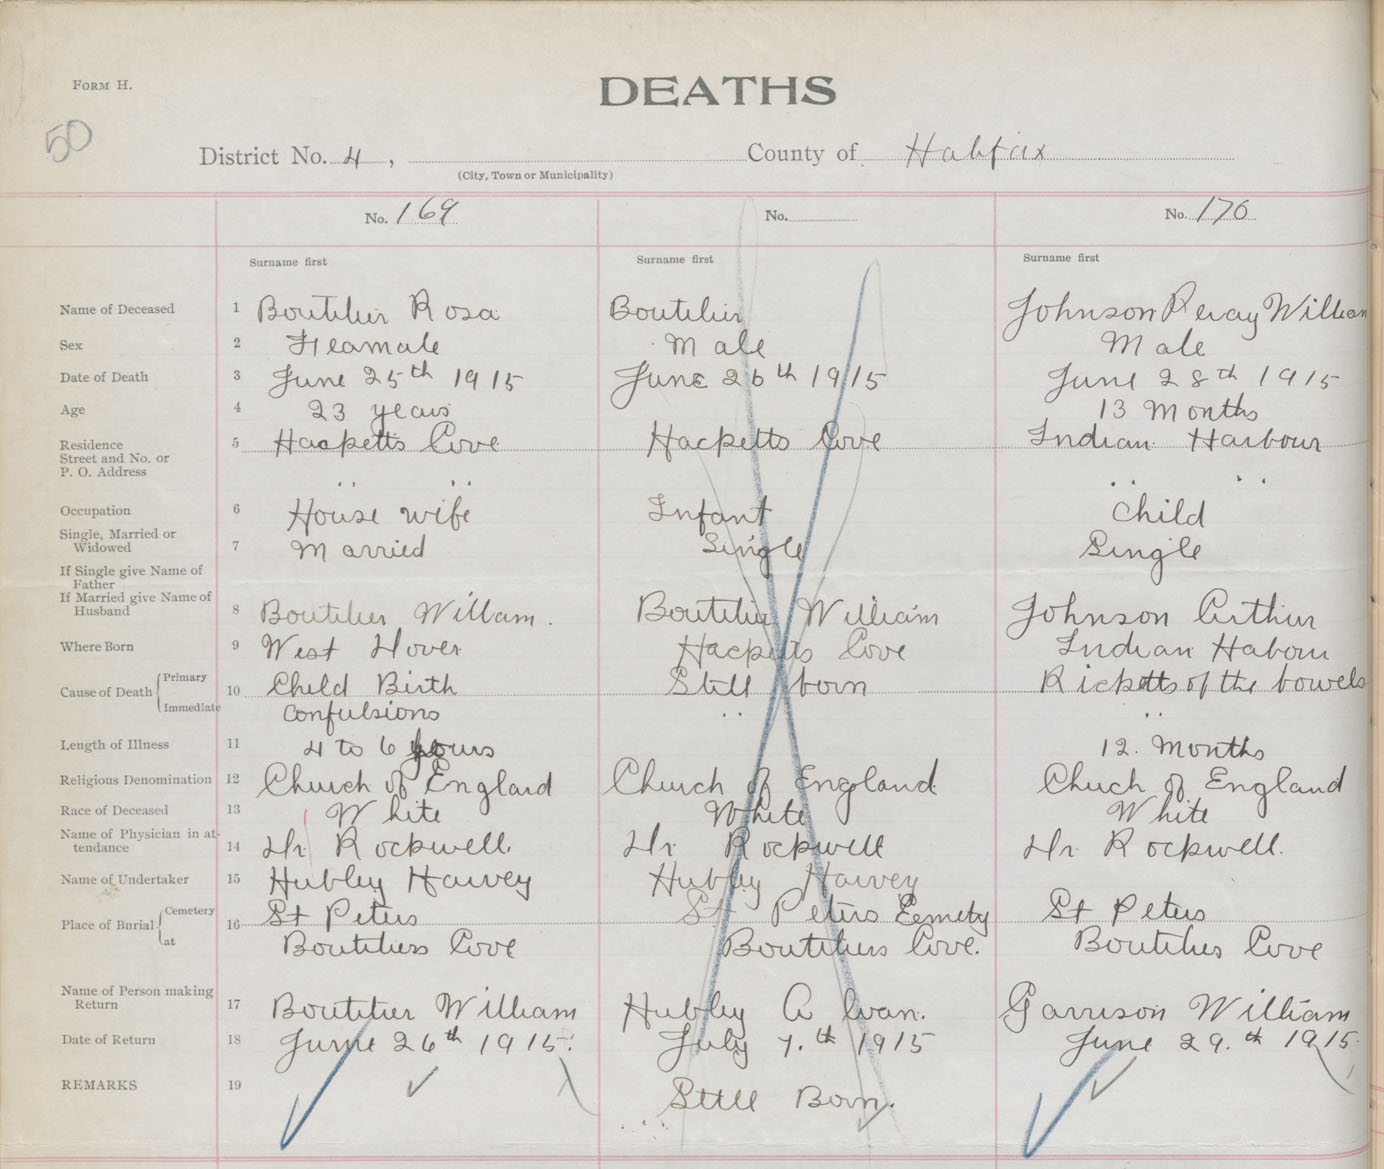 FORM H.
DEATHS
50
District No. 4, County of Halifax
(City, Town or Municipality)
No. 169 No. No. 170
Surname first Surname first Surname first
Name of Deceased 1 Boutilier Rosa Boutilier Johnson Percy William
Sex 2 Feamale Male Male
Date of Death 3 June 25th 1915 June 26th 1915 June 28th 1915
Age 4 23 years 13 Months
Residence 5 Hacketts Cove Hacketts Cove Indian Harbour
Street and No. or
P. O. Address " " " "
Occupation 6 House wife Infant Child
Single, Married or
Widowed 7 Married Single Single
If Single give Name of
Father
If Married give Name of
Husband 8 Boutilier William. Boutilier William Johnson Arthur
Where Born 9 West Dover Hacketts Cove Indian Habour
Cause of Death { Primary 10 Child Birth Still born Ricketts of the bowels
Immediate Confulsions " "
Length of Illness 11 4 to 6 hours 12 Months
Religious Denomination 12 Church of England Church of England Church of England
Race of Deceased 13 White White White
Name of Physician in at-
tendance 14 Dr Rockwell. Dr Rockwell Dr Rockwell.
Name of Undertaker 15 Hubley Harvey Hubley Harvey
Place of Burial { Cemetery 16 St Peters St Peters Cemety St Peters
at Boutiliers Cove Boutiliers Cove. Boutiliers Cove
Name of Person making
Return 17 Boutilier William Hubley A Ivan. Garrison William
Date of Return 18 June 26th 1915. July 7.th 1915 June 29.th 1915
REMARKS 19 Still Born.